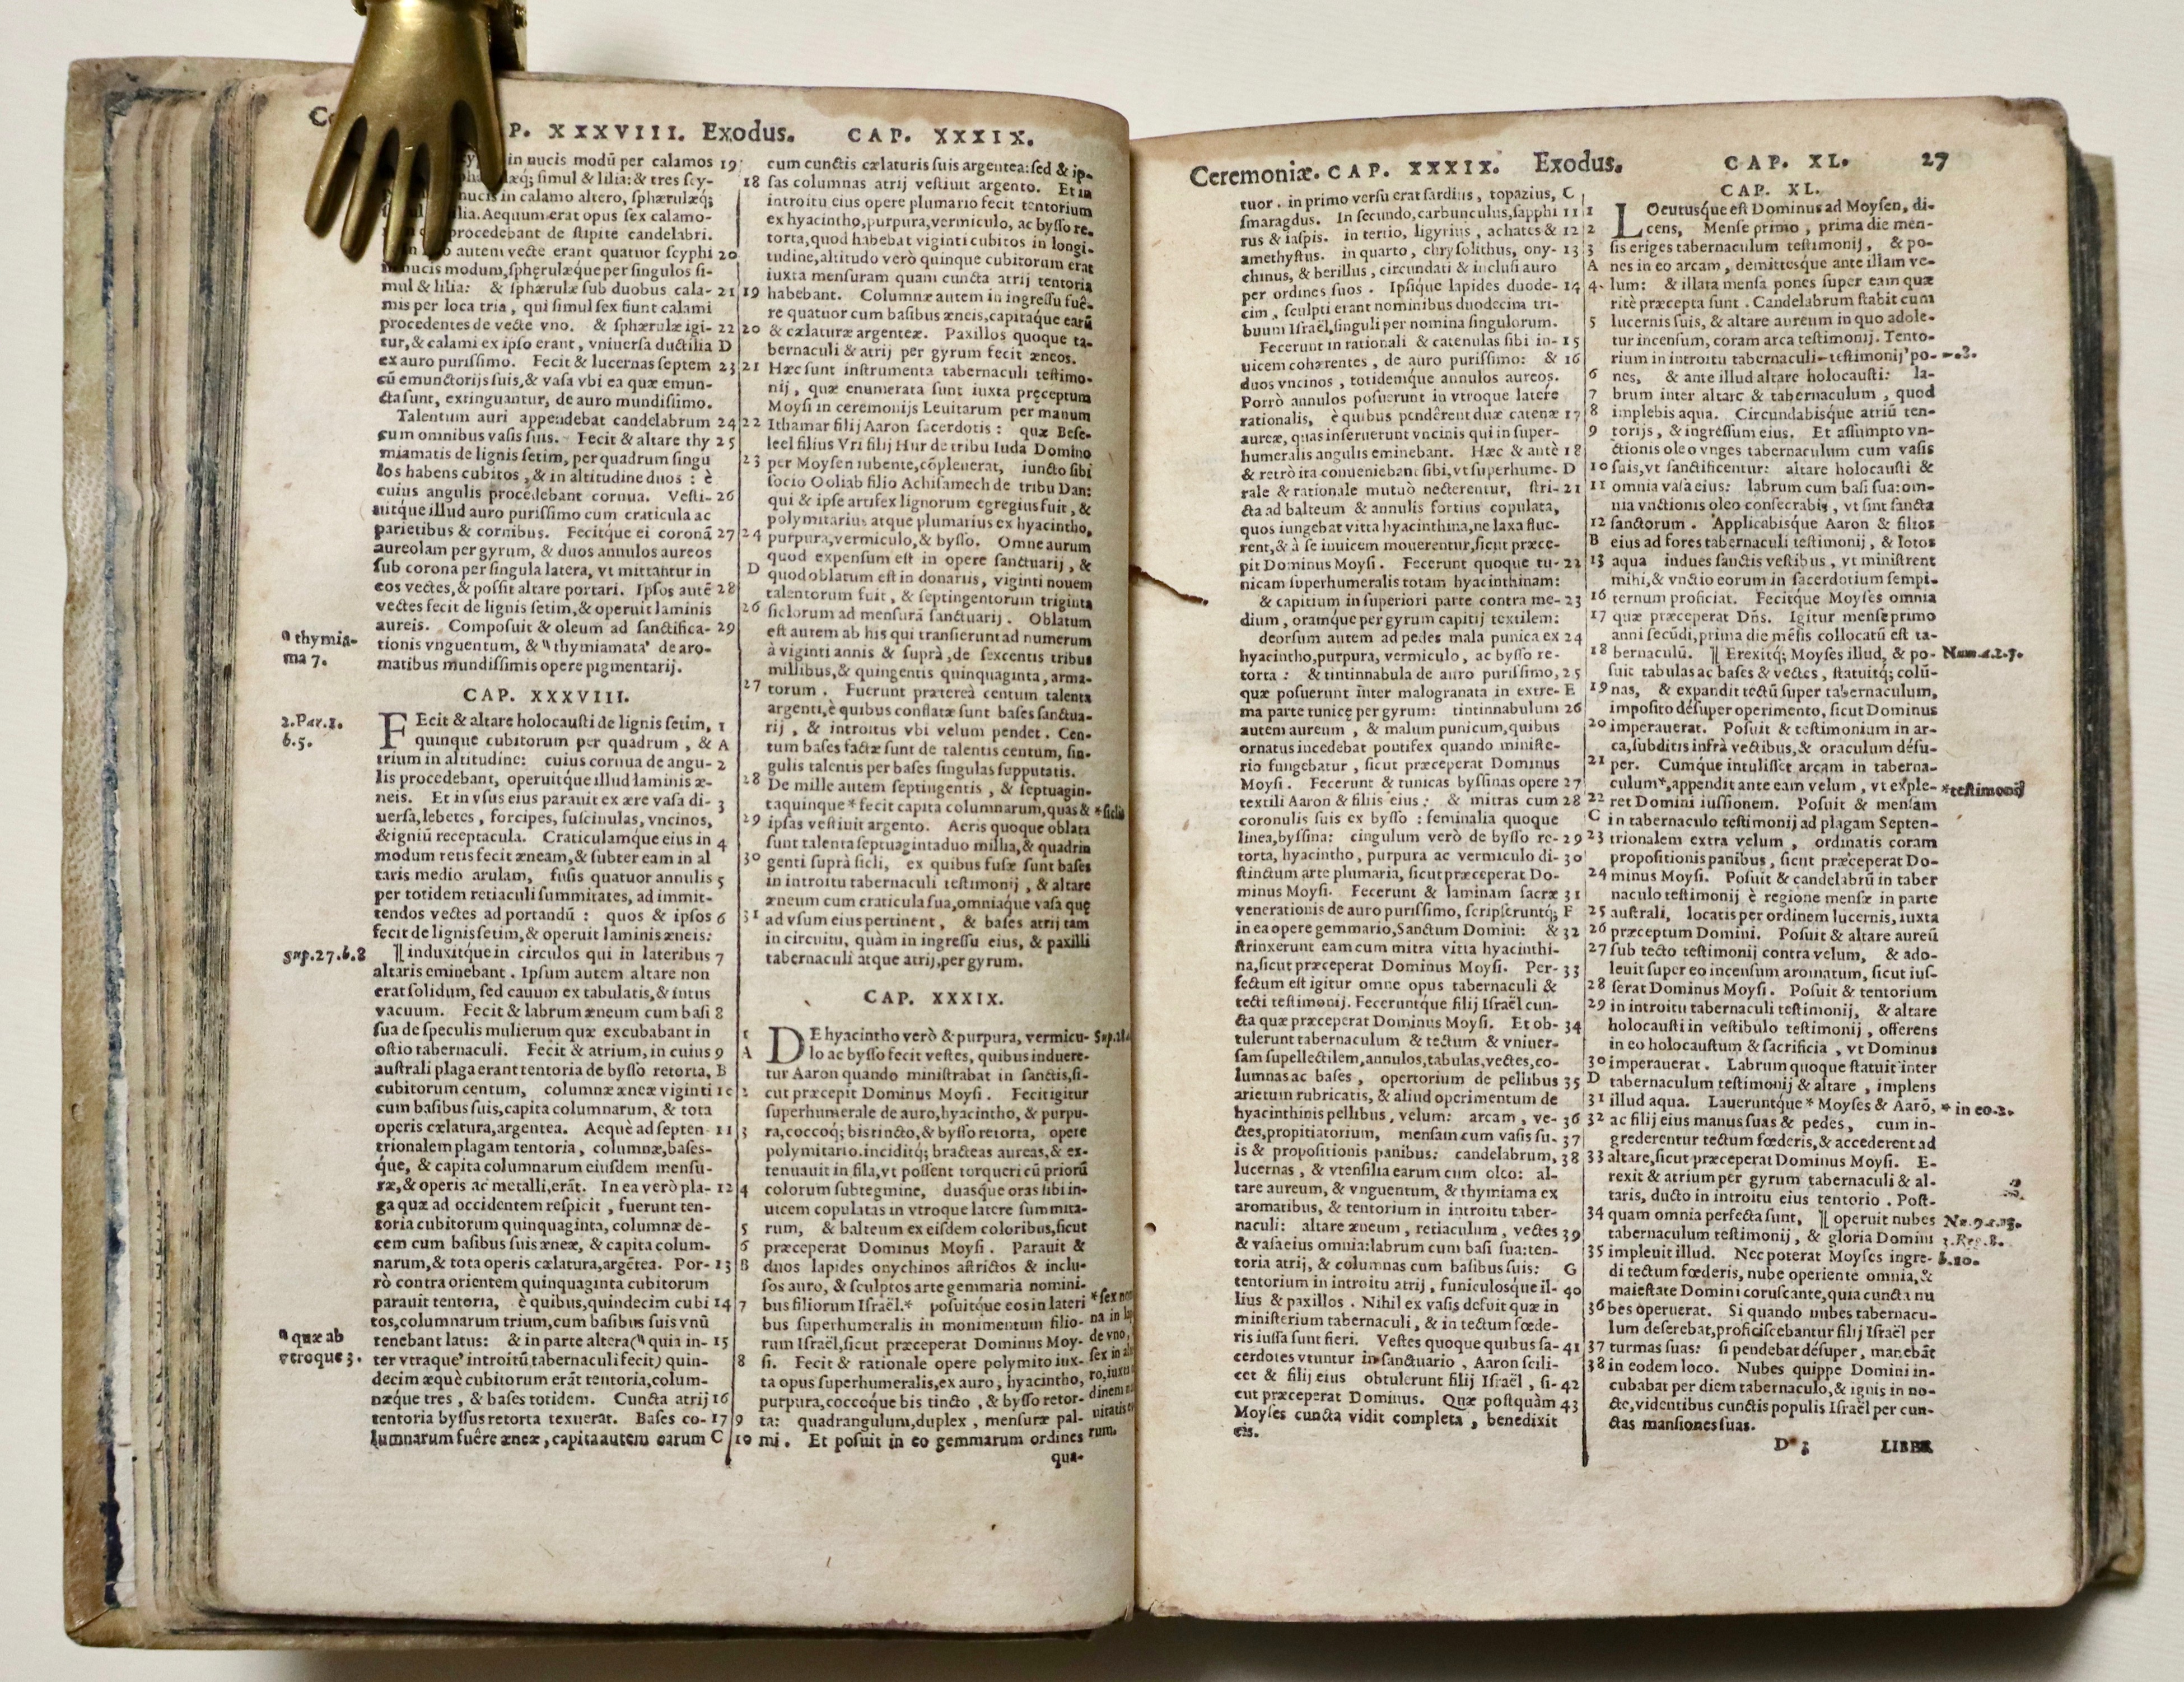 P. XXXVIII. Exodus. CAP. XXXIX.
in nucis modū per calamos 19
simul & lilia: & tres scy-
nucis in calamo altero, sphærulæq;
lia. Aequum erat opus sex calamo-
procedebant de stipite candelabri.
autem vecte erant quatuor scyphi 20
nucis modum, sphęrulæque per singulos si-
mul & lilia: & sphærulæ sub duobus cala- 21
mis per loca tria, qui simul sex fiunt calami
procedentes de vecte vno. & sphærulæ igi- 22
tur, & calami ex ipso erant, vniuersa ductilia D
ex auro purissimo. Fecit & lucernas septem 23
cū emunctorijs suis, & vasa vbi ea quæ emun-
cta sunt, extinguantur, de auro mundissimo.
Talentum auri appendebat candelabrum 24
cum omnibus vasis suis. Fecit & altare thy 25
miamatis de lignis setim, per quadrum singu
los habens cubitos, & in altitudine duos: è
cuius angulis procedebant cornua. Vesti- 26
uitque illud auro purissimo cum craticula ac
parietibus & cornibus. Fecitque ei coronā 27
aureolam per gyrum, & duos annulos aureos
sub corona per singula latera, vt mittantur in
eos vectes, & possit altare portari. Ipsos autē 28
vectes fecit de lignis setim, & operuit laminis
aureis. Composuit & oleum ad sanctifica- 29
tionis vnguentum, & " thymiamata' de aro-
matibus mundissimis opere pigmentarij.
" thymia-
ma 7.
CAP. XXXVIII.
2.Par.1.
b.5.
FEcit & altare holocausti de lignis setim, 1
quinque cubitorum per quadrum, & A
trium in altitudine: cuius cornua de angu- 2
lis procedebant, operuitque illud laminis æ-
neis. Et in vsus eius parauit ex ære vasa di- 3
uersa, lebetes, forcipes, fuscinulas, vncinos,
& igniū receptacula. Craticulamque eius in 4
modum retis fecit æneam, & subter eam in al
taris medio arulam, fusis quatuor annulis 5
per totidem retiaculi summitates, ad immit-
tendos vectes ad portandū: quos & ipsos 6
fecit de lignis setim, & operuit laminis æneis:
sup.27.b.8
][ induxitque in circulos qui in lateribus 7
altaris eminebant. Ipsum autem altare non
erat solidum, sed cauum ex tabulatis, & intus
vacuum. Fecit & labrum æneum cum basi 8
sua de speculis mulierum quæ excubabant in
ostio tabernaculi. Fecit & atrium, in cuius 9
australi plaga erant tentoria de bysso retorta, B
cubitorum centum, columnæ æneæ viginti 10
cum basibus suis, capita columnarum, & tota
operis cælatura, argentea. Aequè ad septen- 11
trionalem plagam tentoria, columnæ, bases-
que, & capita columnarum eiusdem mensu-
ræ, & operis ac metalli, erāt. In ea verò pla- 12
ga quæ ad occidentem respicit, fuerunt ten-
toria cubitorum quinquaginta, columnæ de-
cem cum basibus suis æneæ, & capita colum-
narum, & tota operis cælatura, argētea. Por- 13
rò contra orientem quinquaginta cubitorum
parauit tentoria, è quibus, quindecim cubi 14
tos, columnarum trium, cum basibus suis vnū
tenebant latus: & in parte altera (" quia in- 15
ter vtraque' introitū tabernaculi fecit) quin-
decim æquè cubitorum erāt tentoria, colum-
næque tres, & bases totidem. Cuncta atrij 16
tentoria byssus retorta texuerat. Bases co- 17
lumnarum fuêre æneæ, capita autem earum C
" quæ ab
vtroque 3.
cum cunctis cælaturis suis argentea: sed & ip-
18 sas columnas atrij vestiuit argento. Et in
introitu eius opere plumario fecit tentorium
ex hyacintho, purpura, vermiculo, ac bysso re-
torta, quod habebat viginti cubitos in longi-
tudine, altitudo verò quinque cubitorum erat
iuxta mensuram quam cuncta atrij tentoria
19 habebant. Columnæ autem in ingressu fuê-
re quatuor cum basibus æneis, capitaque earū
20 & cælaturæ argenteæ. Paxillos quoque ta-
bernaculi & atrij per gyrum fecit æneos.
21 Hæc sunt instrumenta tabernaculi testimo-
nij, quæ enumerata sunt iuxta pręceptum
Moysi in ceremonijs Leuitarum per manum
22 Ithamar filij Aaron sacerdotis: quæ Bese-
leel filius Vri filij Hur de tribu Iuda Domino
23 per Moysen iubente, cōpleuerat, iuncto sibi
socio Ooliab filio Achisamech de tribu Dan:
qui & ipse artifex lignorum egregius fuit, &
polymitarius atque plumarius ex hyacintho,
24 purpura, vermiculo, & bysso. Omne aurum
quod expensum est in opere sanctuarij, &
D quod oblatum est in donariis, viginti nouem
talentorum fuit, & septingentorum triginta
26 siclorum ad mensurā sanctuarij. Oblatum
est autem ab his qui transierunt ad numerum
à viginti annis & suprà, de sexcentis tribus
millibus, & quingentis quinquaginta, arma-
27 torum. Fuerunt præterea centum talenta
argenti, è quibus conflatæ sunt bases sanctua-
rij, & introitus vbi velum pendet. Cen-
tum bases factæ sunt de talentis centum, sin-
gulis talentis per bases singulas supputatis.
28 De mille autem septingentis, & septuagin-
taquinque * fecit capita columnarum, quas & * siclis
29 ipsas vestiuit argento. Aeris quoque oblata
sunt talenta septuagintaduo millia, & quadrin
30 genti suprà sicli, ex quibus fusæ sunt bases
in introitu tabernaculi testimonij, & altare
æneum cum craticula sua, omniaque vasa quę
31 ad vsum eius pertinent, & bases atrij tam
in circuitu, quàm in ingressu eius, & paxilli
tabernaculi atque atrij, per gyrum.
CAP. XXXIX.
1 DE hyacintho verò & purpura, vermicu- Sup.28.
A lo ac bysso fecit vestes, quibus induere-
tur Aaron quando ministrabat in sanctis, si-
2 cut præcepit Dominus Moysi. Fecit igitur
superhumerale de auro, hyacintho, & purpu-
3 ra, coccoq; bis tincto, & bysso retorta, opere
polymitario. inciditq; bracteas aureas, & ex-
tenuauit in fila, vt possent torqueri cū priorū
4 colorum subtegmine, duasque oras sibi in-
uicem copulatas in vtroque latere summita-
5 rum, & balteum ex eisdem coloribus, sicut
6 præceperat Dominus Moysi. Parauit &
B duos lapides onychinos astrictos & inclu-
sos auro, & sculptos arte gemmaria nomini-
7 bus filiorum Israël.* posuitque eos in lateri
bus superhumeralis in monimentum filio-
rum Israël, sicut præceperat Dominus Moy-
8 si. Fecit & rationale opere polymito iux-
ta opus superhumeralis, ex auro, hyacintho,
purpura, coccoque bis tincto, & bysso retor-
9 ta: quadrangulum, duplex, mensuræ pal-
10 mi. Et posuit in eo gemmarum ordines
qua-
* sex
na in
de vno,
sex in
ro, iuxta
dinem
rum.
Ceremoniæ. CAP. XXXIX. Exodus. CAP. XL. 27
tuor. in primo versu erat sardius, topazius, C
smaragdus. In secundo, carbunculus, sapphi 11
rus & iaspis. in tertio, ligyrius, achates & 12
amethystus. in quarto, chrysolithus, ony- 13
chinus, & berillus, circundati & inclusi auro
per ordines suos. Ipsique lapides duode- 14
cim, sculpti erant nominibus duodecim tri-
buum Israël, singuli per nomina singulorum.
Fecerunt in rationali & catenulas sibi in- 15
uicem cohærentes, de auro purissimo: & 16
duos vncinos, totidemque annulos aureos.
Porrò annulos posuerunt in vtroque latere
rationalis, è quibus pendêrent duæ catenæ 17
aureæ, quas inseruerunt vncinis qui in super-
humeralis angulis eminebant. Hæc & antè 18
& retrò ita conueniebant sibi, vt superhume- D
rale & rationale mutuò necterentur, stri- 21
cta ad balteum & annulis fortius copulata,
quos iungebat vitta hyacinthina, ne laxa fluc-
rent, & à se inuicem mouerentur, sicut præce-
pit Dominus Moysi. Fecerunt quoque tu- 22
nicam superhumeralis totam hyacinthinam:
& capitium in superiori parte contra me- 23
dium, oramque per gyrum capitij textilem:
deorsum autem ad pedes mala punica ex 24
hyacintho, purpura, vermiculo, ac bysso re-
torta: & tintinnabula de auro purissimo, 25
quæ posuerunt inter malogranata in extre- E
ma parte tunicę per gyrum: tintinnabulum 26
autem aureum, & malum punicum, quibus
ornatus incedebat pontifex quando ministe-
rio fungebatur, sicut præceperat Dominus
Moysi. Fecerunt & tunicas byssinas opere 27
textili Aaron & filiis eius: & mitras cum 28
coronulis suis ex bysso: feminalia quoque
linea, byssina: cingulum verò de bysso re- 29
torta, hyacintho, purpura ac vermiculo di- 30
stinctum arte plumaria, sicut præceperat Do-
minus Moysi. Fecerunt & laminam sacræ 31
venerationis de auro purissimo, scripseruntq; F
in ea opere gemmario, Sanctum Domini: & 32
strinxerunt eam cum mitra vitta hyacinthi-
na, sicut præceperat Dominus Moysi. Per- 33
fectum est igitur omne opus tabernaculi &
tecti testimonij. Feceruntque filij Israël cun-
cta quæ præceperat Dominus Moysi. Et ob- 34
tulerunt tabernaculum & tectum & vniuer-
sam supellectilem, annulos, tabulas, vectes, co-
lumnas ac bases, opertorium de pellibus 35
arietum rubricatis, & aliud operimentum de
hyacinthinis pellibus, velum: arcam, ve- 36
ctes, propitiatorium, mensam cum vasis su- 37
is & propositionis panibus: candelabrum, 38
lucernas, & vtensilia earum cum oleo: al-
tare aureum, & vnguentum, & thymiama ex
aromatibus, & tentorium in introitu taber-
naculi: altare æneum, retiaculum, vectes 39
& vasa eius omnia: labrum cum basi sua: ten-
toria atrij, & columnas cum basibus suis: G
tentorium in introitu atrij, funiculosque il- 40
lius & paxillos. Nihil ex vasis defuit quæ in
ministerium tabernaculi, & in tectum fœde-
ris iussa sunt fieri. Vestes quoque quibus sa- 41
cerdotes vtuntur in sanctuario, Aaron scili-
cet & filij eius obtulerunt filij Israël, si- 42
cut præceperat Dominus. Quæ postquàm 43
Moyses cuncta vidit completa, benedixit
eis.
CAP. XL.
1 LOcutusque est Dominus ad Moysen, di-
2 cens, Mense primo, prima die men-
3 sis eriges tabernaculum testimonij, & po-
A nes in eo arcam, demittesque ante illam ve-
4 lum: & illata mensa pones super eam quæ
ritè præcepta sunt. Candelabrum stabit cum
5 lucernis suis, & altare aureum in quo adole-
tur incensum, coram arca testimonij. Tento-
rium in introitu tabernaculi testimonij' po-
6 nes, & ante illud altare holocausti: la-
7 brum inter altare & tabernaculum, quod
8 implebis aqua. Circundabisque atriū ten-
9 torijs, & ingressum eius. Et assumpto vn-
ctionis oleo vnges tabernaculum cum vasis
10 suis, vt sanctificentur: altare holocausti &
11 omnia vasa eius: labrum cum basi sua: om-
nia vnctionis oleo consecrabis, vt sint sancta
12 sanctorum. Applicabisque Aaron & filios
B eius ad fores tabernaculi testimonij, & lotos
13 aqua indues sanctis vestibus, vt ministrent
mihi, & vnctio eorum in sacerdotium sempi-
16 ternum proficiat. Fecitque Moyses omnia
17 quæ præceperat Dñs. Igitur mense primo
anni secūdi, prima die mēsis collocatū est ta-
18 bernaculū. ][ Erexitq; Moyses illud, & po- Num.1.2.7.
suit tabulas ac bases & vectes, statuitq; colū-
19 nas, & expandit tectū super tabernaculum,
imposito désuper operimento, sicut Dominus
20 imperauerat. Posuit & testimonium in ar-
ca, subditis infrà vectibus, & oraculum désu-
21 per. Cumque intulisset arcam in taberna-
culum*, appendit ante eam velum, vt exple- * testimonij
22 ret Domini iussionem. Posuit & mensam
C in tabernaculo testimonij ad plagam Septen-
23 trionalem extra velum, ordinatis coram
propositionis panibus, sicut præceperat Do-
24 minus Moysi. Posuit & candelabrū in taber
naculo testimonij è regione mensæ in parte
25 australi, locatis per ordinem lucernis, iuxta
26 præceptum Domini. Posuit & altare aureū
27 sub tecto testimonij contra velum, & ado-
leuit super eo incensum aromatum, sicut ius-
28 serat Dominus Moysi. Posuit & tentorium
29 in introitu tabernaculi testimonij, & altare
holocausti in vestibulo testimonij, offerens
in eo holocaustum & sacrificia, vt Dominus
30 imperauerat. Labrum quoque statuit inter
D tabernaculum testimonij & altare, implens
31 illud aqua. Laueruntque * Moyses & Aarō, * in eo.2.
32 ac filij eius manus suas & pedes, cum in-
grederentur tectum fœderis, & accederent ad
33 altare, sicut præceperat Dominus Moysi. E-
rexit & atrium per gyrum tabernaculi & al-
taris, ducto in introitu eius tentorio. Post-
34 quam omnia perfecta sunt, ][ operuit nubes
tabernaculum testimonij, & gloria Domini 3.Reg.8.
35 impleuit illud. Nec poterat Moyses ingre- b.10.
di tectum fœderis, nube operiente omnia, &
maiestate Domini coruscante, quia cuncta nu
36 bes operuerat. Si quando nubes tabernacu-
lum deserebat, proficiscebantur filij Israël per
37 turmas suas: si pendebat désuper, manebāt
38 in eodem loco. Nubes quippe Domini in-
cubabat per diem tabernaculo, & ignis in no-
cte, videntibus cunctis populis Israël per cun-
ctas mansiones suas.
D 3 LIBER